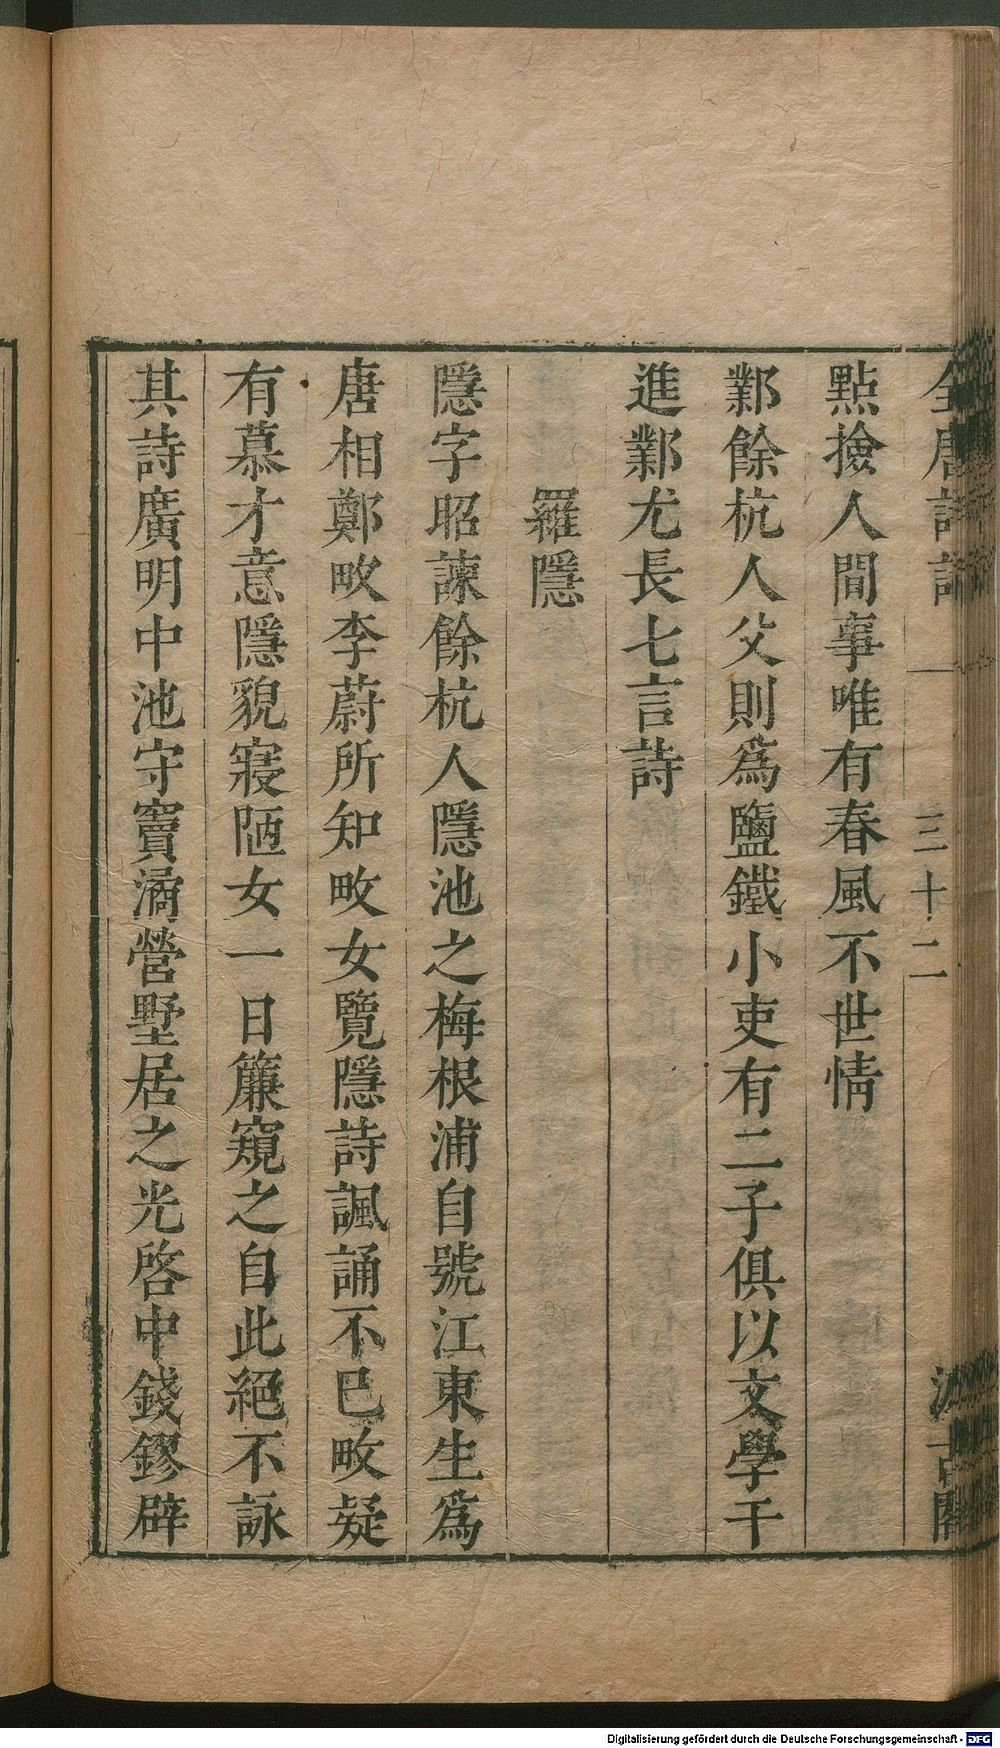 全唐詩話
三十二
汲古閣
點撿人間事唯有春風不世情
鄴餘杭人父則為鹽鐵小吏有二子俱以文學干
進鄴尤長七言詩
羅隱
隱字昭諫餘杭人隱池之梅根浦自號江東生為
唐相鄭畋李蔚所知畋女覽隱詩諷誦不已畋疑
有慕才意隱貌寢陋女一日簾窺之自此絕不詠
其詩廣明中池守竇潏營墅居之光啓中錢鏐辟
Digitalisierung gefördert durch die Deutsche Forschungsgemeinschaft - DFG